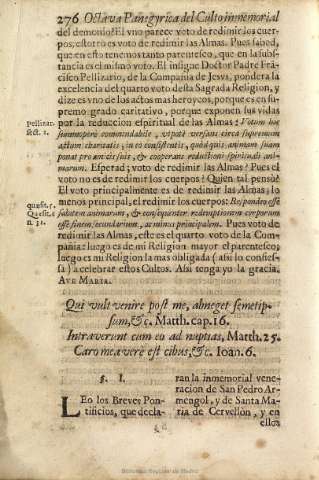 276 Octava Panegyrica del Culto inmemorial
del demonio? El vno parece voto de redimir los cuer-
pos, estotro es voto de redimir las Almas. Pues sabed,
que en esto tenemos tanto parentesco, que en la subs-
tancia es el mismo voto. El insigne Doctor Padre Frá-
cisco Pellizario, de la Compañia de Jesvs, pondera la
excelencia del quarto voto desta Sagrada Religion, y
dize es vno de los actos mas heroycos, porque es en su-
premo grado caritativo, porque exponen sus vidas
por la reduccion espiritual de las Almas: Votum hoc
summopere commendabile, vtpote versans circa supremum
actum charitatis; in eo consistentis, quòd quis animam suam
ponat pro
reductioni spirituali ani-
marum. Esperad; voto de redimir las Almas? Pues el
voto no es de redimir los cuerpos? Quien tal pensò?
El voto principalmente es de redimir las Almas, lo
menos principal, el redimir los cuerpos: Respondeo esse
salutem animarum, & consequenter redemptionem corporum
esse finem secundarium, ac minus principalem. Pues voto de
redimir las Almas, este es el quarto voto de la Com-
pañia: luego es de mi Religion mayor el parentesco;
luego es mi Religion la mas obligada ( assi lo confies-
sa ) à celebrar estos Cultos. Assi tenga yo la gracia.
Ave Maria.
Pellizar.
sect. 2.
quæsit. 5.
Quæsit. 6
n. 31.
Qui vult venire post me, abneget semetip-
sum, &c. Matth. cap. 16.
Intraverunt cum eo ad nuptias, Matth. 25.
Caro mea vere est cibus, &c. Ioan. 6.
§. I.
LEo los Breves Pon-
tificios, que decla-
ran la inmemorial vene-
racion de San Pedro Ar-
mengol, y de Santa Ma-
ria de Cervellon, y en
ellos
Biblioteca Regional de Madrid